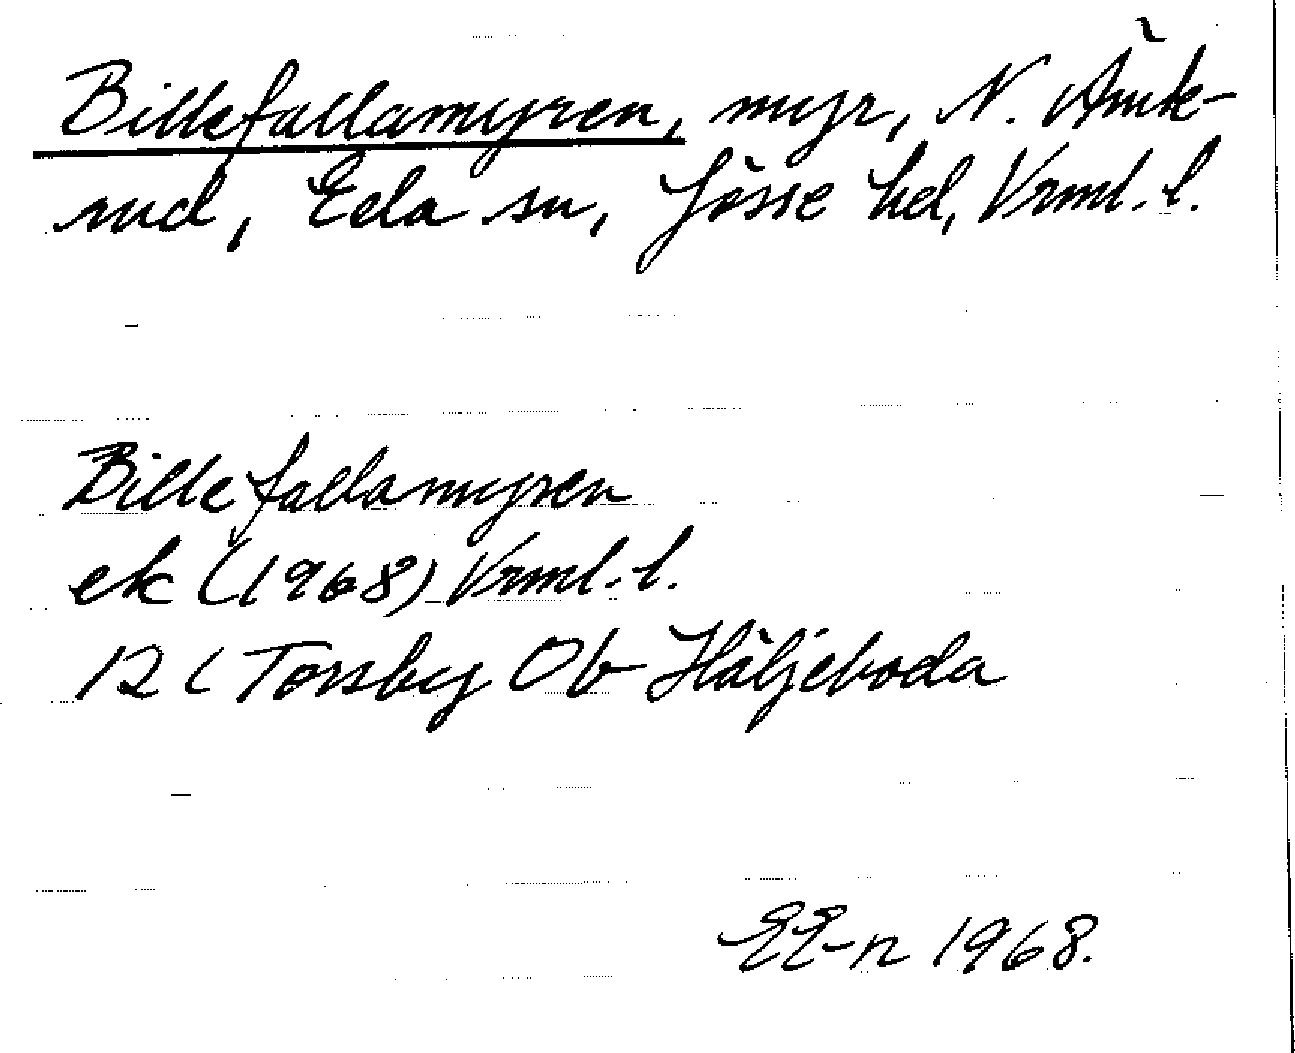 Billefallamyren, myr, N. Åmik-
rud, Eda sn, Jösse hd, Vrml. l.
Billefallamyren
ek (1968) Vrml. l.
12 C Torsby Ob Häljeboda
EE-n 1968.